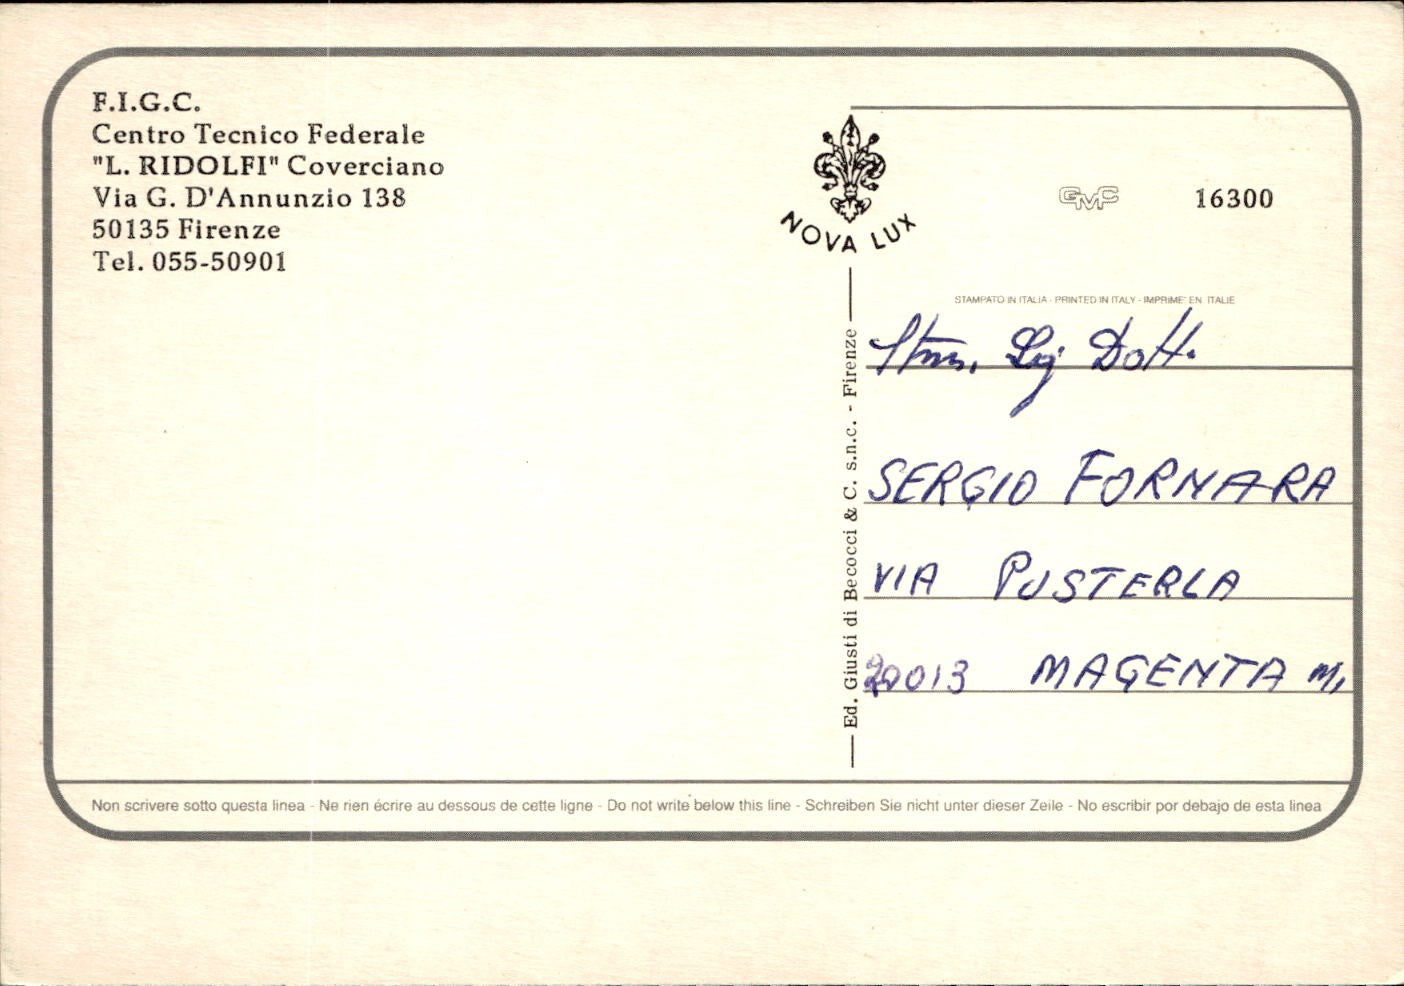 F.I.G.C.
Centro Tecnico Federale
"L. RIDOLFI" Coverciano
Via G. D'Annunzio 138
50135 Firenze
Tel. 055-50901
NOVA LUX
GMC 16300
STAMPATO IN ITALIA - PRINTED IN ITALY - IMPRIME' EN ITALIE
Ed. Giusti di Becocci & C. s.n.c. - Firenze
Dott.
SERGIO FORNARA
VIA PUSTERLA
20013 MAGENTA MI
Non scrivere sotto questa linea - Ne rien écrire au dessous de cette ligne - Do not write below this line - Schreiben Sie nicht unter dieser Zeile - No escribir por debajo de esta linea